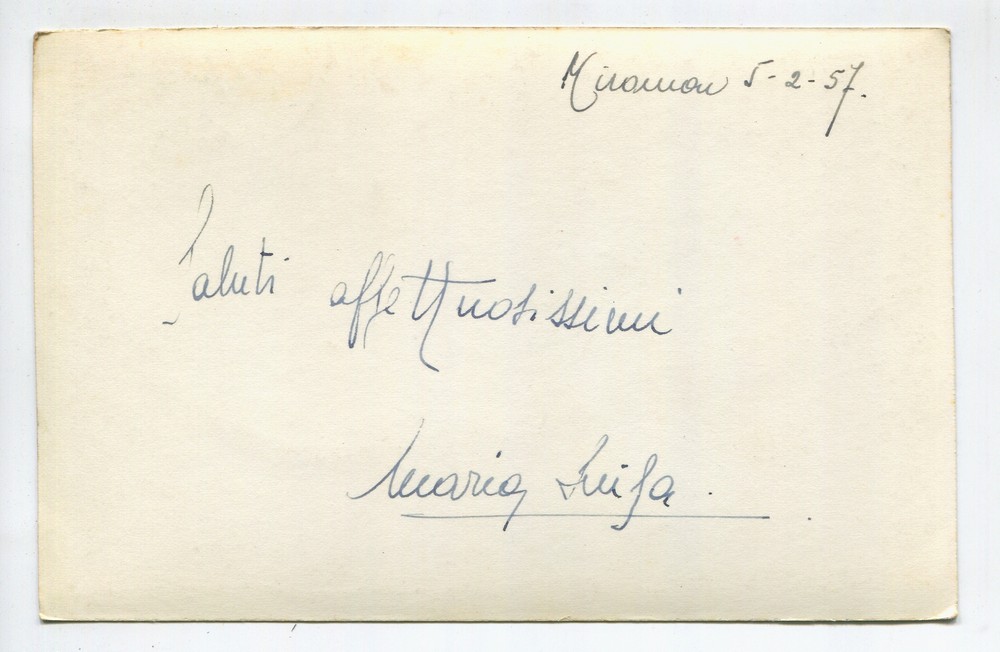 Miramar 5-2-57.
Saluti affettuosissimi
Maria Luisa.